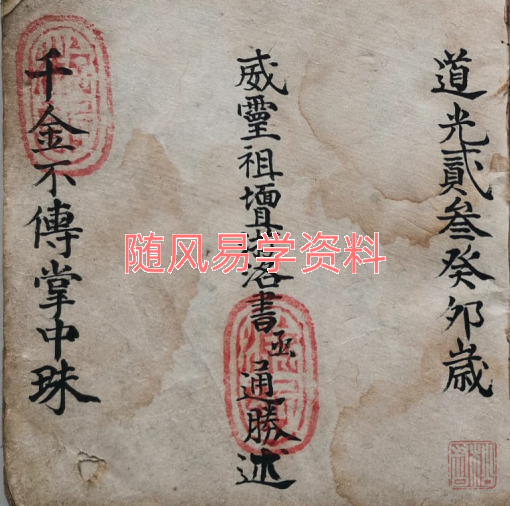 道光貳叁癸卯歲
威靈祖壇 洛書 丞 通勝述
千金不傳掌中珠
随风易学资料